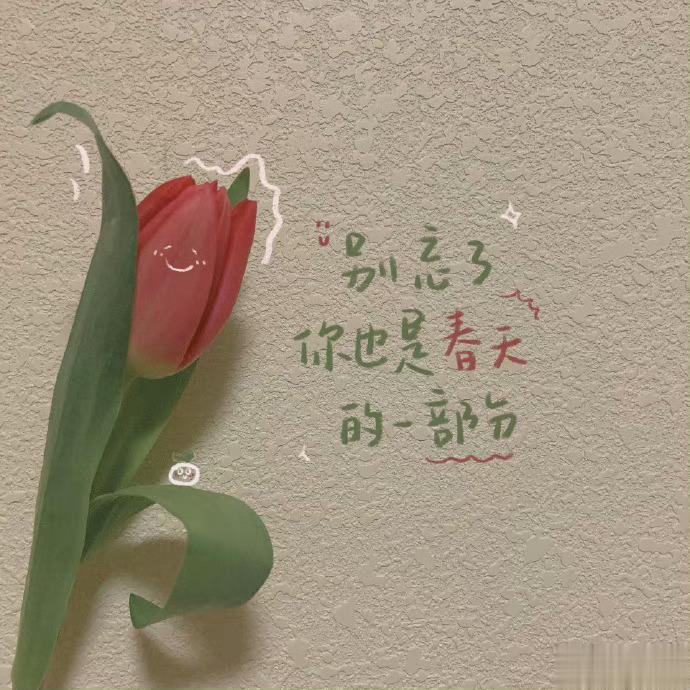 别忘了
你也是春天
的一部分